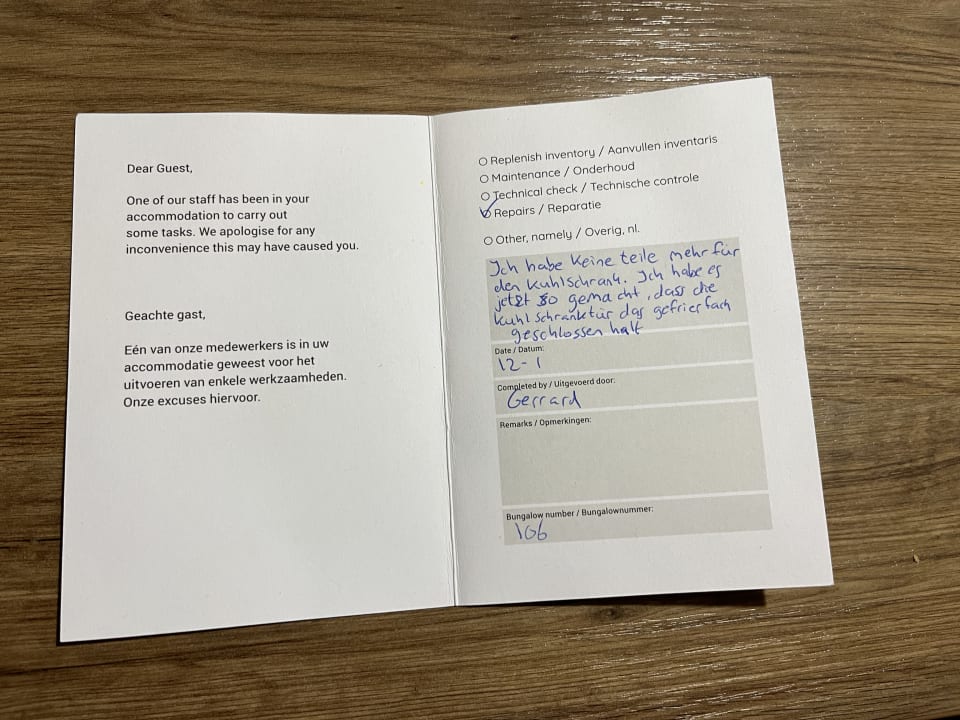 Dear Guest,
One of our staff has been in your
accommodation to carry out
some tasks. We apologise for any
inconvenience this may have caused you.
Geachte gast,
Eén van onze medewerkers is in uw
accommodatie geweest voor het
uitvoeren van enkele werkzaamheden.
Onze excuses hiervoor.
Replenish inventory / Aanvullen inventaris
Maintenance / Onderhoud
Technical check / Technische controle
Repairs / Reparatie
Other, namely / Overig, nl.
Ich habe keine teile mehr für
den kuhlschrank. Ich habe es
jetzt so gemacht, dass die
kuhlschranktür das gefrierfach
geschlossen halt
Date / Datum:
12-1
Completed by / Uitgevoerd door:
Gerrard
Remarks / Opmerkingen:
Bungalow number / Bungalownummer:
106